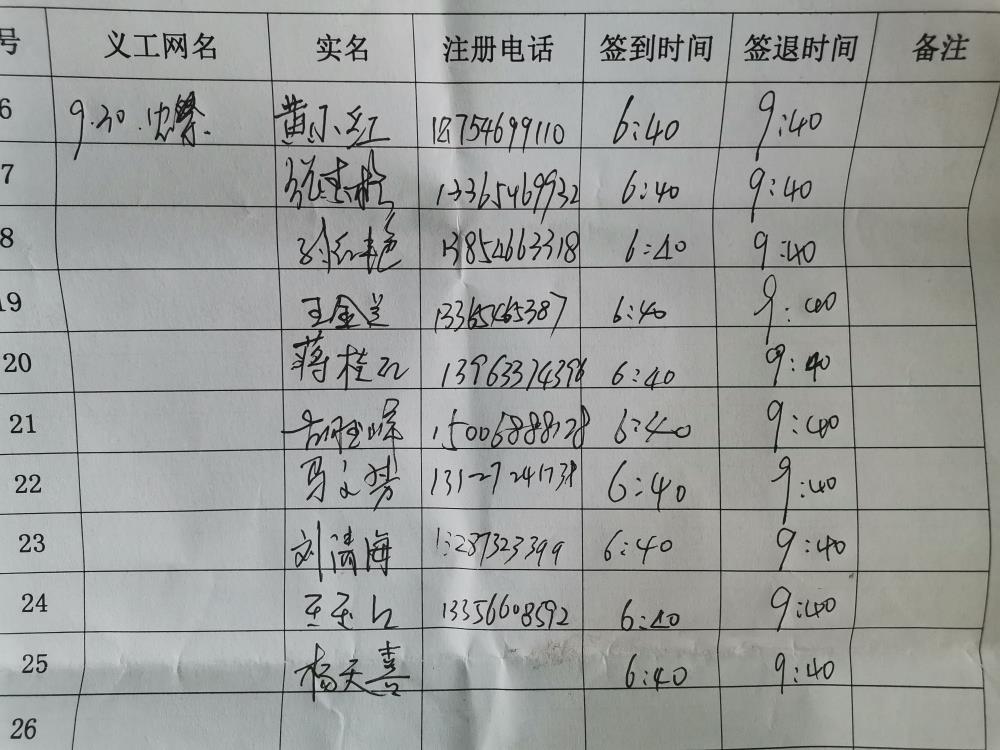 号 义工网名 实名 注册电话 签到时间 签退时间 备注
6 9.30. 黄小红 18754699110 6:40 9:40
7 13365469932 6:40 9:40
8 红艳 13854663318 6:40 9:40
19 王金兰 13365465387 6:40 9:40
20 蒋桂红 13963374396 6:40 9:40
21 15006888128 6:40 9:40
22 马文芳 6:40 9:40
23 刘清海 13287323399 6:40 9:40
24 王玉 13356608592 6:40 9:40
25 杨天喜 6:40 9:40
26